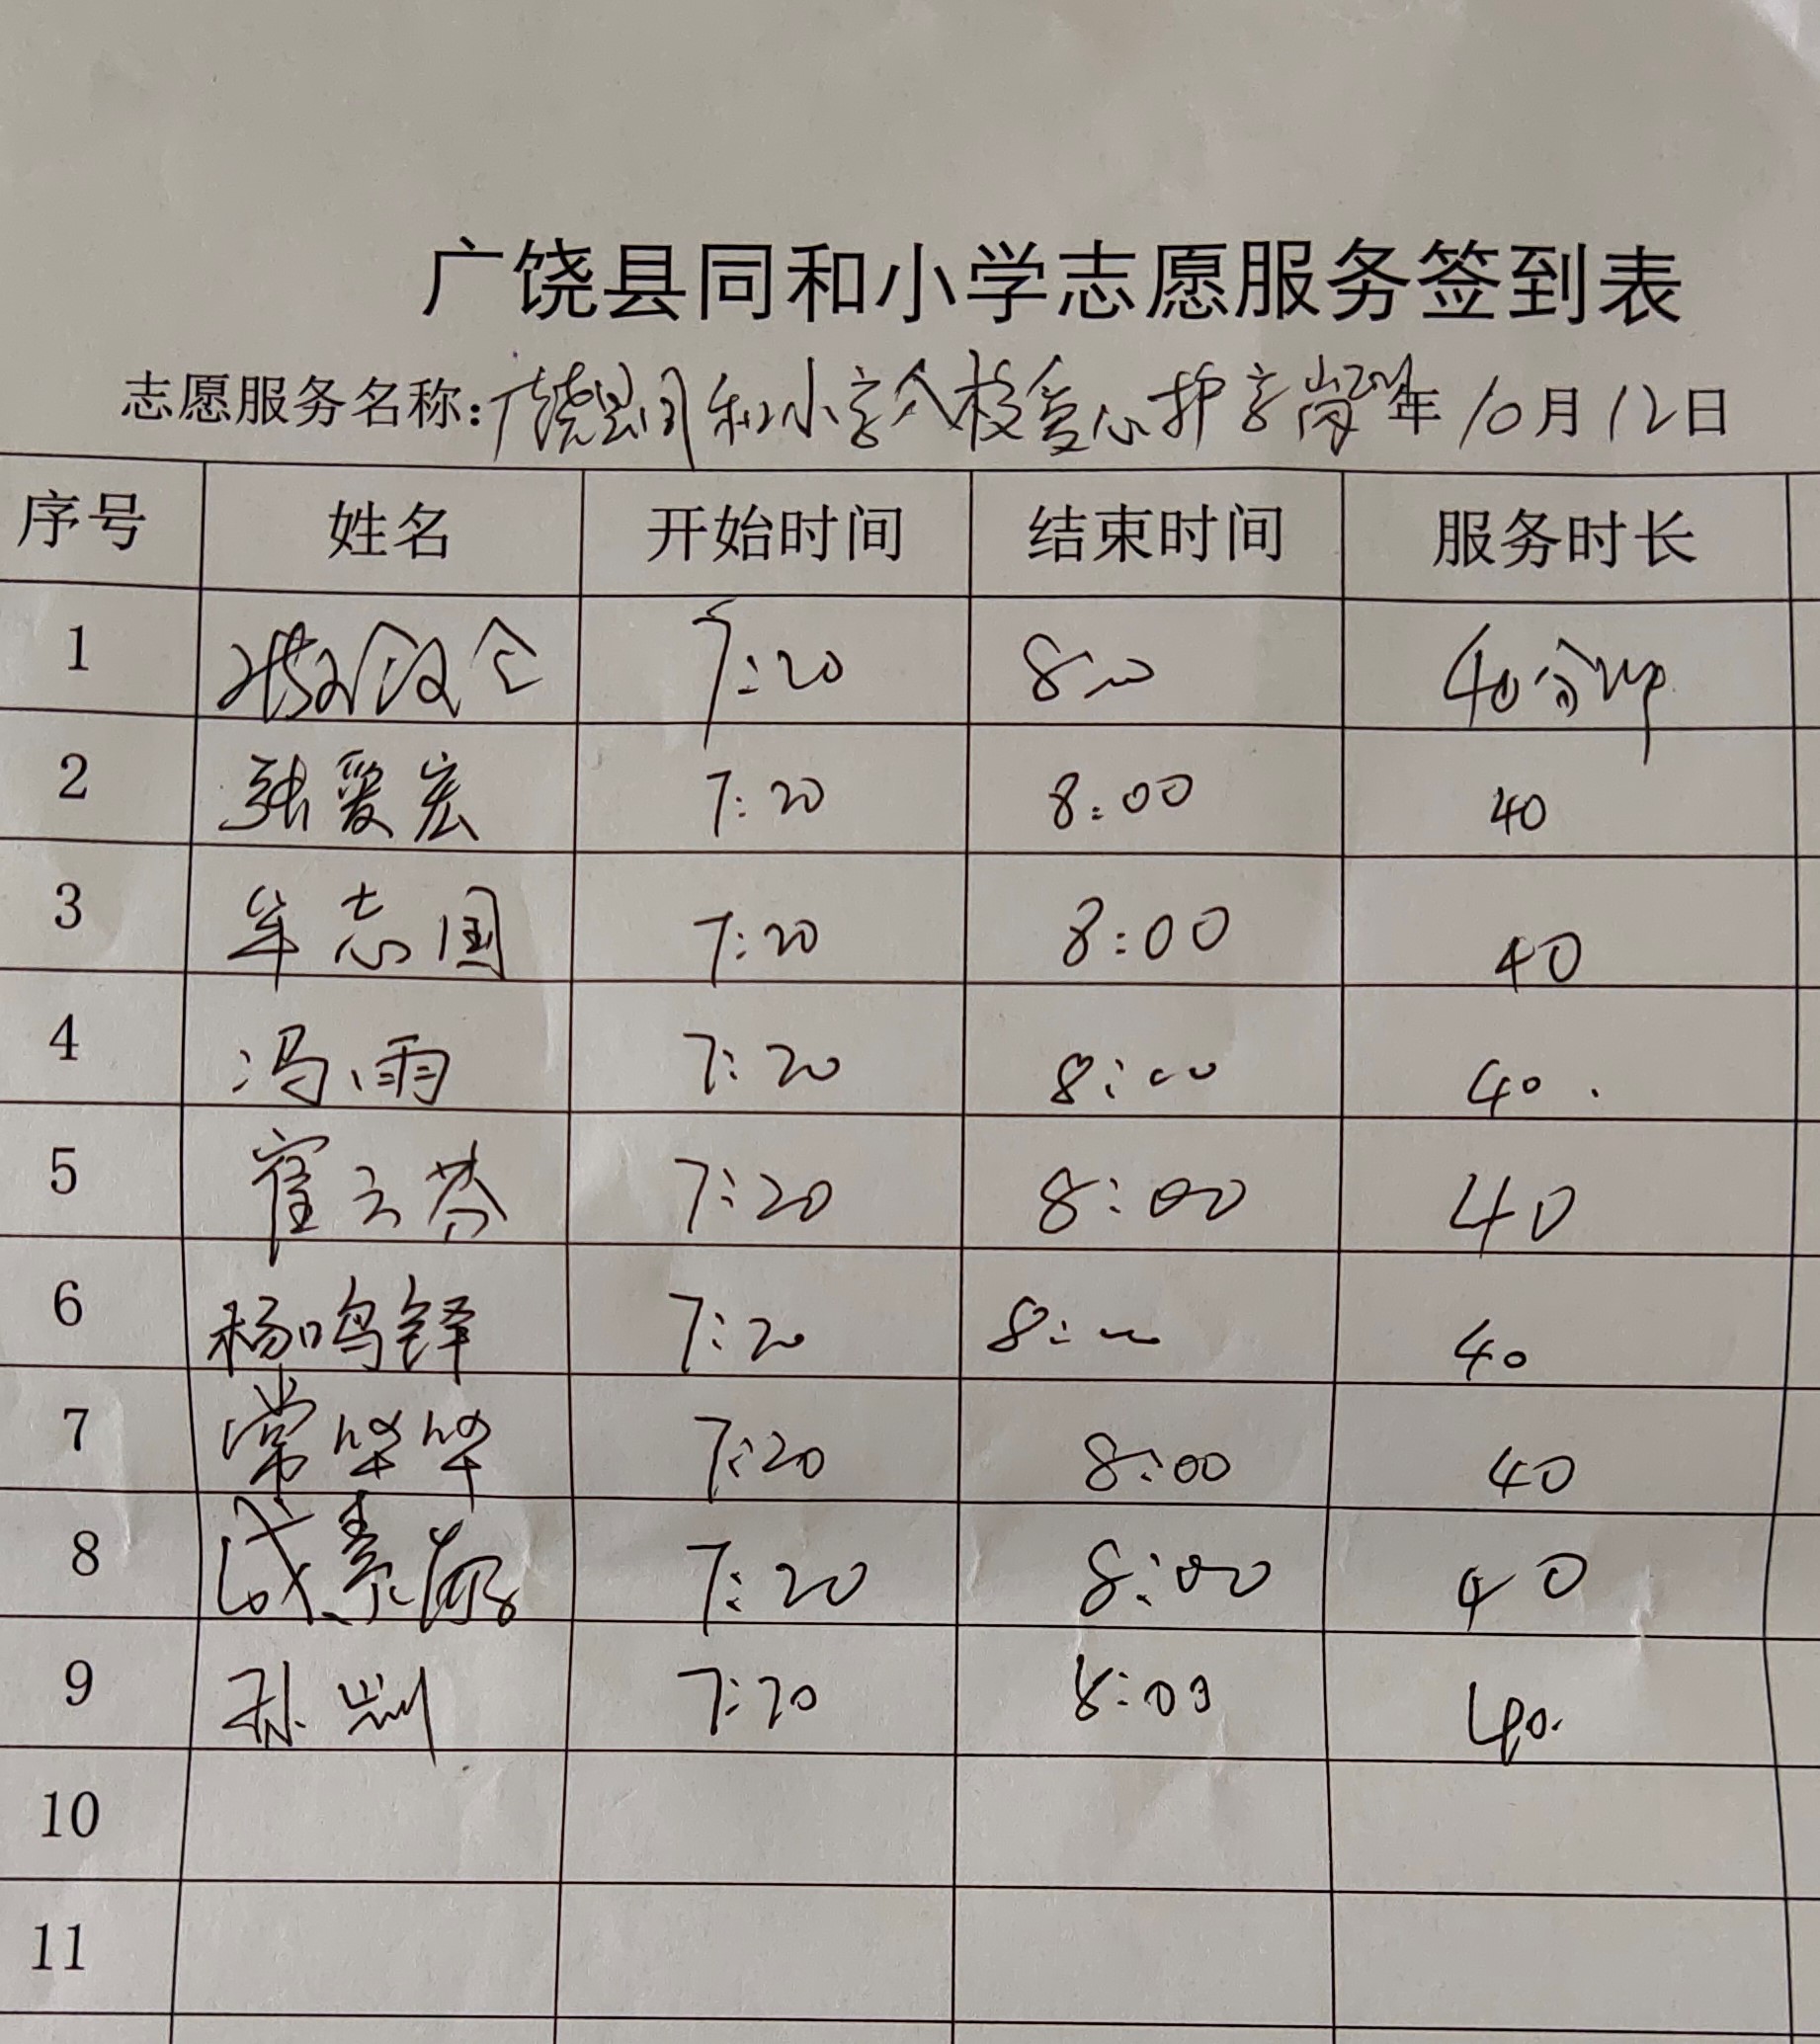 广饶县同和小学志愿服务签到表
志愿服务名称:广饶县同和小学入校爱心护学岗 年10月12日
序号 姓名 开始时间 结束时间 服务时长
1 7:20 8:00 40分钟
2 张爱宏 7:20 8:00 40
3 牟志国 7:20 8:00 40
4 冯雨 7:20 8:00 40.
5 崔云芬 7:20 8:00 40
6 杨鸣铎 7:20 8:00 40
7 常华华 7:20 8:00 40
8 成素 7:20 8:00 40
9 孙 7:20 8:00 40.
10
11